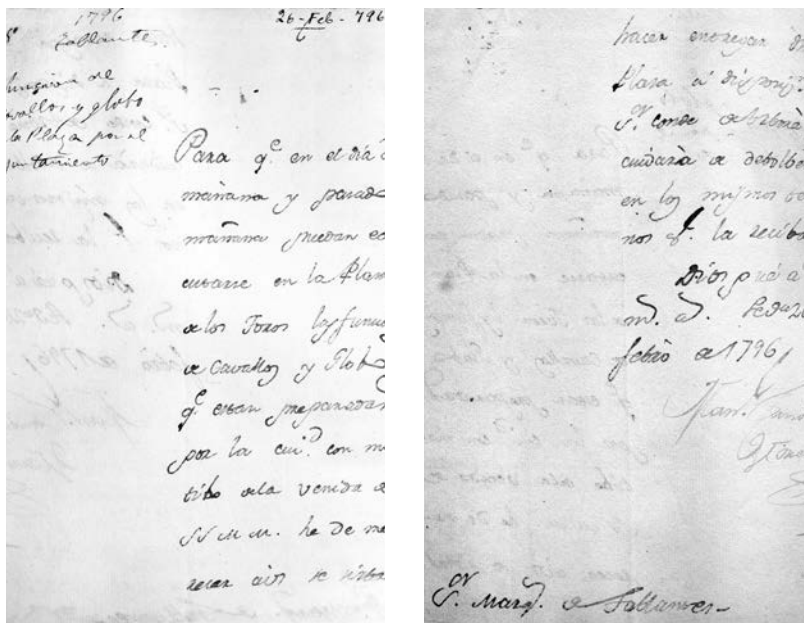 1796
26-Feb-796
Tablantes.
función de
vallos y globo
la Plaza por el
yuntamiento
Para q.e en el dia
mañana y pasad
mañana puedan
cutarse en la Pla
de los Toros las func
de Cavallos y Glob
q.e estan preparada
por la ciu.d con mo
tibo de la venida d
SS M M. he de me
recer a
se sirba
hacer entregar d
Plaza á dispos.
S.or conde de
cuidará de debolbe
en los mismos te
nos q.e la recibi
Dios g.ue á
m.s a.s
febro de 1796
S.or Marq.s de Tablantes-